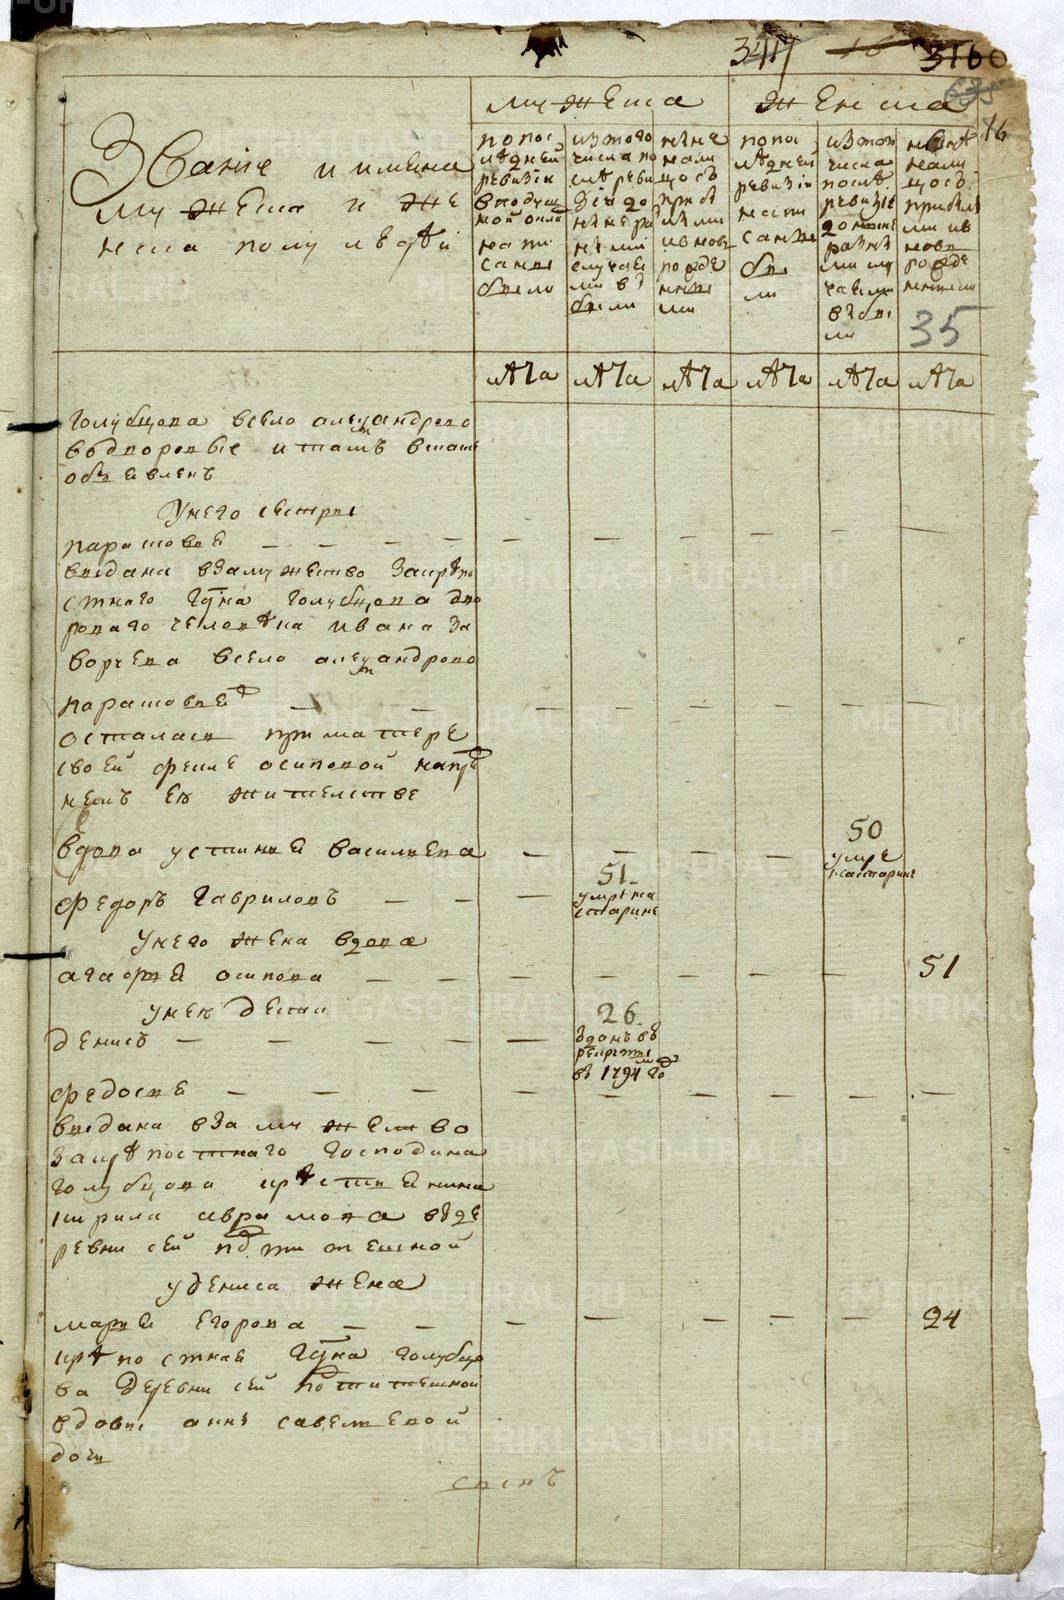 347 16 3160
635
16
мужеска женска
Звание и имяна
мужеска и же
нска полу людей
по пос
ледней
ревизии
в подуш
ной окла
написа
саны
были
из того
числа по
сле реви
зии до
ныне ра
зными
случаи
ми вы
были
ныне
нали
цо съ
прибы
лыми
и внов
рожде
нны
ми
по пос
ледней
ревизии
напи
саны
бы
ли
из того
числа
после
ревизии
доныне
разны
ми слу
чаями
выбы
ли
ныне
нали
цо съ
прибыл
ми и в
новь
рожде
нными
35
лета лета лета лета лета лета
голубцова в село александрово
въ дворовые и тамъ в скаске
объявленъ
У него сестры
парасковья — — — — — — — — — —
выдана взамужество за крепо
стнаго г͠дна голубцова дво
роваго человека ивана за
ворчева в село александрово
парасковья — — — — — — — —
осталась при матере
своей фекле осиповой на пре
жнемъ ея жительстве
вдова устинья васильева — — — — 50
умре
на старине
федоръ гавриловъ — — — 51
умре на
старине
у него жена вдова
агафья осипова — — — — — — — — 51
у нея дети
денисъ — — — — — 26
зданъ въ
рекруты
въ 1794 м год
федосья — — — — — — — — —
выдана взамужество
за крепостнаго господина
голубцова крестьянина
кирила аврамова въ де
ревни сей подти тешной
у дениса жена
марья егорова — — — — — — — 24
крепостная г͠дна голубцо
ва деревни сей по ти тешной
вдовы анны савельевой
дочь
сынъ
METRIKI.GASO-URAL.RU